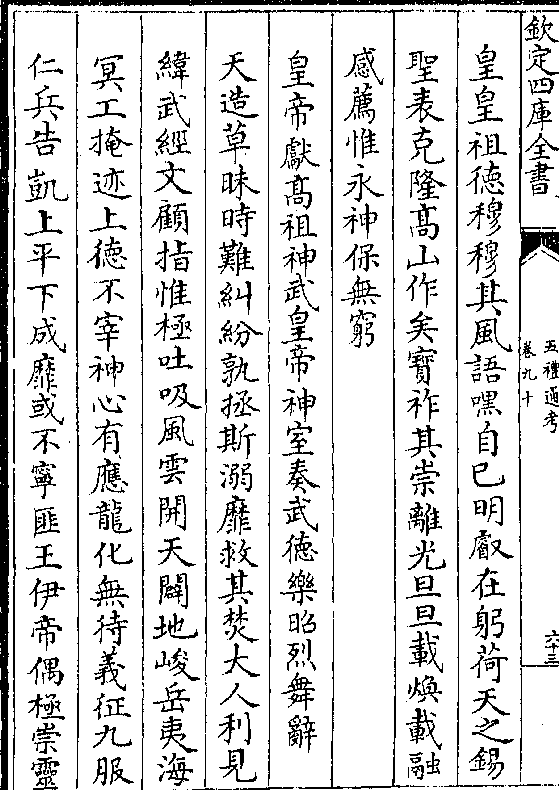 欽定四庫全書
五禮通考
卷九十
六十三
皇皇祖德穆穆其風語嘿自己明叡在躬荷天之錫
聖表克隆高山作矣寳祚其崇離光旦旦載煥載融
感薦惟永神保無窮
皇帝獻高祖神武皇帝神室奏武德樂昭烈舞辭
天造草昧時難糾紛孰拯斯溺靡救其焚大人利見
緯武經文顧指惟極吐吸風雲開天闢地峻岳夷海
冥工掩迹上德不宰神心有應龍化無待義征九服
仁兵告凱上平下成靡或不寧匪王伊帝偶極崇靈